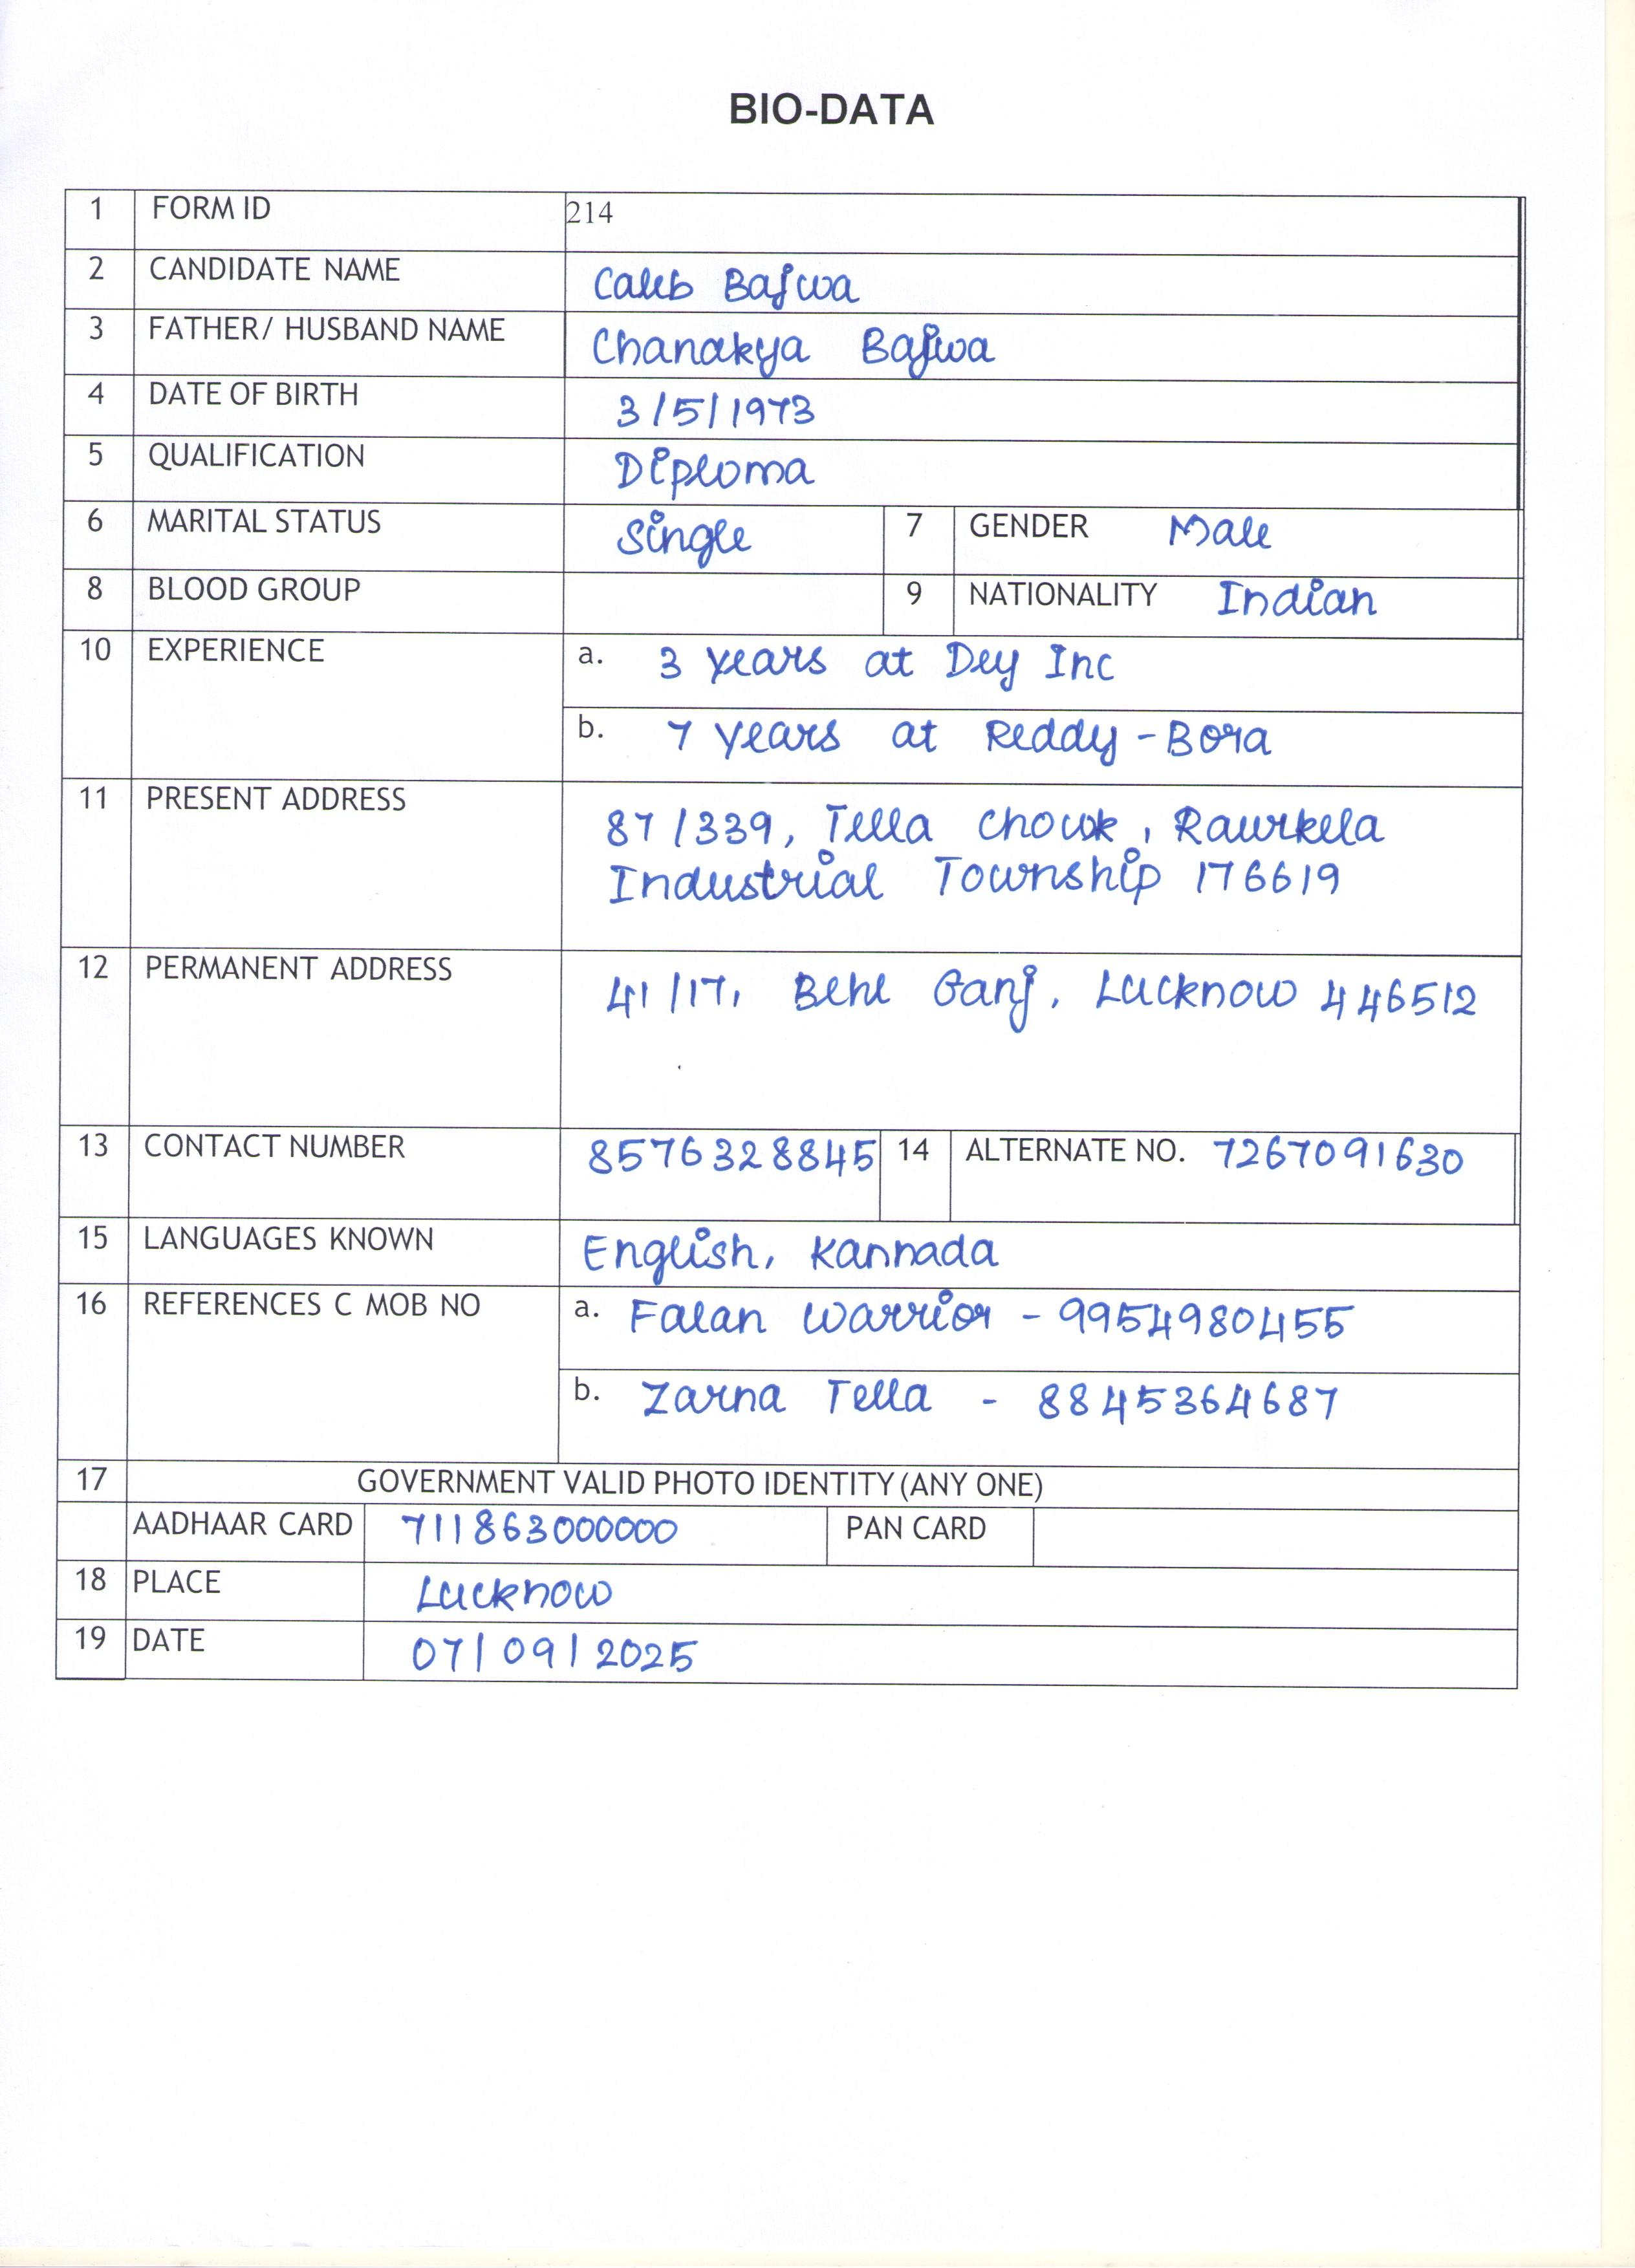 BIO-DATA
1 FORM ID 214
2 CANDIDATE NAME Caleb Bajwa
3 FATHER/ HUSBAND NAME Chanakya Bajwa
4 DATE OF BIRTH 3/5/1973
5 QUALIFICATION Diploma
6 MARITAL STATUS Single 7 GENDER Male
8 BLOOD GROUP 9 NATIONALITY Indian
10 EXPERIENCE a. 3 years at Dey Inc
b. 7 years at Reddy-Bora
11 PRESENT ADDRESS
87/339, Tella Chowk, Rawrkela
Industrial Township 176619
12 PERMANENT ADDRESS
41/17, Behl Ganj, Lucknow 446512
13 CONTACT NUMBER 8576328845 14 ALTERNATE NO. 7267091630
15 LANGUAGES KNOWN English, Kannada
16 REFERENCES C MOB NO a. Falan Warrior - 9954980455
b. Zarna Tella - 8845364687
17 GOVERNMENT VALID PHOTO IDENTITY (ANY ONE)
AADHAAR CARD 711863000000 PAN CARD
18 PLACE Lucknow
19 DATE 07/09/2025